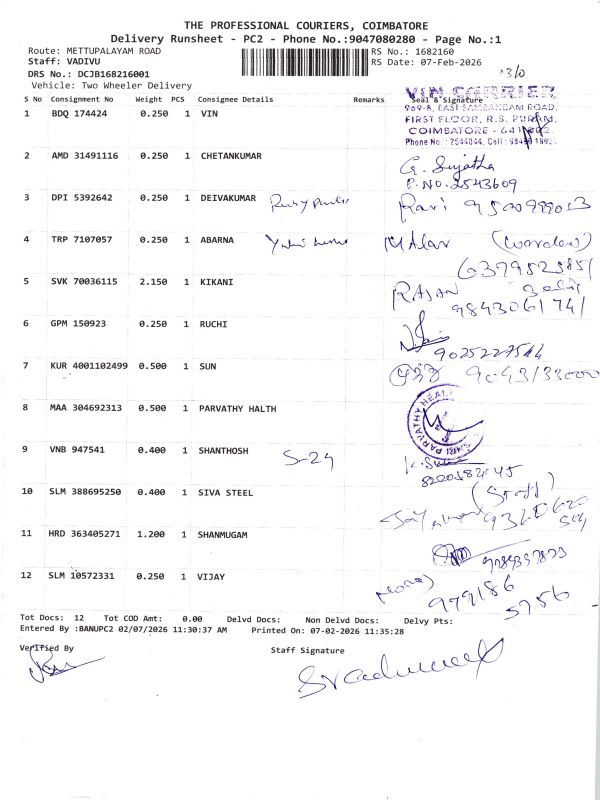 THE PROFESSIONAL COURIERS, COIMBATORE
Delivery Runsheet - PC2 - Phone No.:9047080280 - Page No.:1
Route: METTUPALAYAM ROAD RS No.: 1682160
Staff: VADIVU RS Date: 07-Feb-2026
DRS No.: DCJB168216001
Vehicle: Two Wheeler Delivery
S No Consignment No Weight PCS Consignee Details Remarks Seal & Signature
VIN CARRIER
969-B, EAST SAMBANDAM ROAD,
FIRST FLOOR, R.S. PURAM,
COIMBATORE - 641 002.
1 BDQ 174424 0.250 1 VIN
2 AMD 31491116 0.250 1 CHETANKUMAR G. Sujatha
P.NO. 2543609
3 DPI 5392642 0.250 1 DEIVAKUMAR Ravi
4 TRP 7107057 0.250 1 ABARNA MALAR (warden)
5 SVK 70036115 2.150 1 KIKANI RAJAN
9843061741
6 GPM 150923 0.250 1 RUCHI
7 KUR 4001102499 0.500 1 SUN
8 MAA 304692313 0.500 1 PARVATHY HALTH
SHRI PARVATHY
9 VNB 947541 0.400 1 SHANTHOSH S-24
10 SLM 388695250 0.400 1 SIVA STEEL (Staff)
11 HRD 363405271 1.200 1 SHANMUGAM
12 SLM 10572331 0.250 1 VIJAY
979186
5756
Tot Docs: 12 Tot COD Amt: 0.00 Delvd Docs: Non Delvd Docs: Delvy Pts:
Entered By :BANUPC2 02/07/2026 11:30:37 AM Printed On: 07-02-2026 11:35:28
Verified By Staff Signature